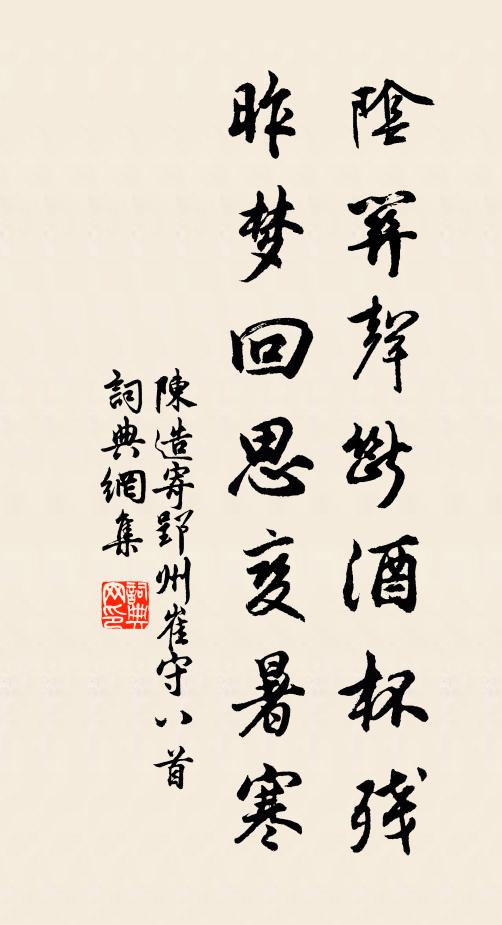 陰聲斷酒杯殘
昨梦回思变暑寒
陳造寄郢州崔守八首
詞典網集
詞典網印